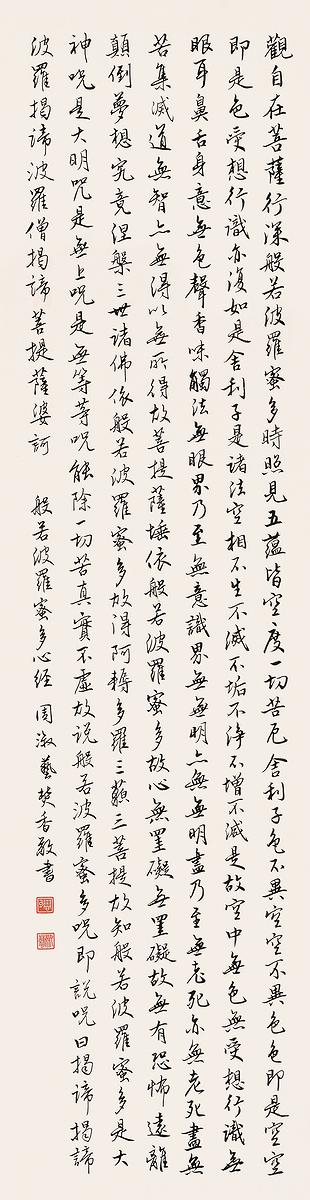 觀自在菩薩行深般若波羅蜜多時照見五蘊皆空度一切苦厄舍利子色不異空空不異色色即是空空
即是色受想行識亦復如是舍利子是諸法空相不生不滅不垢不淨不增不滅是故空中無色無受想行識無
眼耳鼻舌身意無色聲香味觸法無眼界乃至無意識界無無明亦無無明盡乃至無老死亦無老死盡無
苦集滅道無智亦無得以無所得故菩提薩埵依般若波羅蜜多故心無罣礙無罣礙故無有恐怖遠離
顛倒夢想究竟涅槃三世諸佛依般若波羅蜜多故得阿耨多羅三藐三菩提故知般若波羅蜜多是大
神咒是大明咒是無上咒是無等等咒能除一切苦真實不虛故說般若波羅蜜多咒即說咒曰揭諦揭諦
波羅揭諦波羅僧揭諦菩提薩婆訶 般若波羅蜜多心經 周淑藝焚香敬書